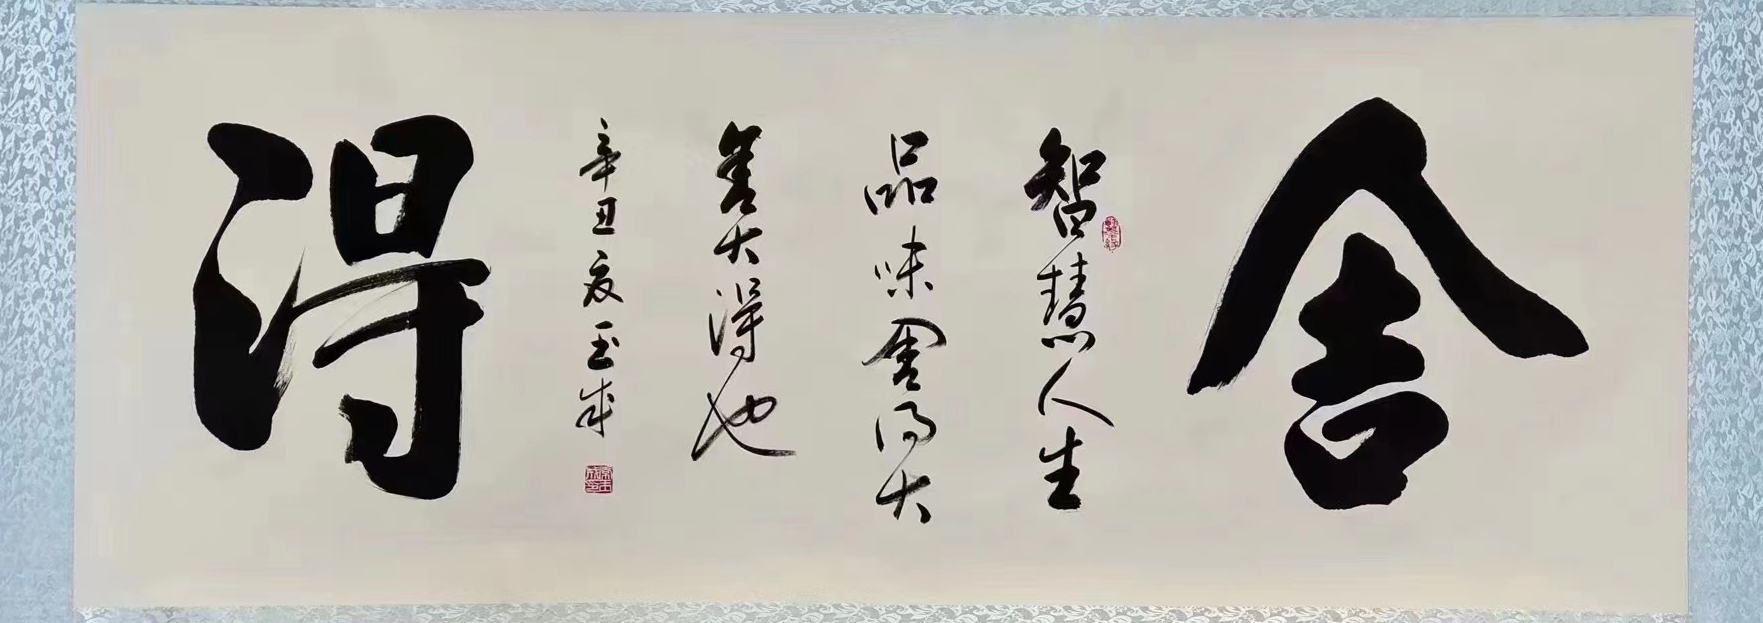 舍
智慧人生
品味舍得大
舍大得也
辛丑夏玉成
得